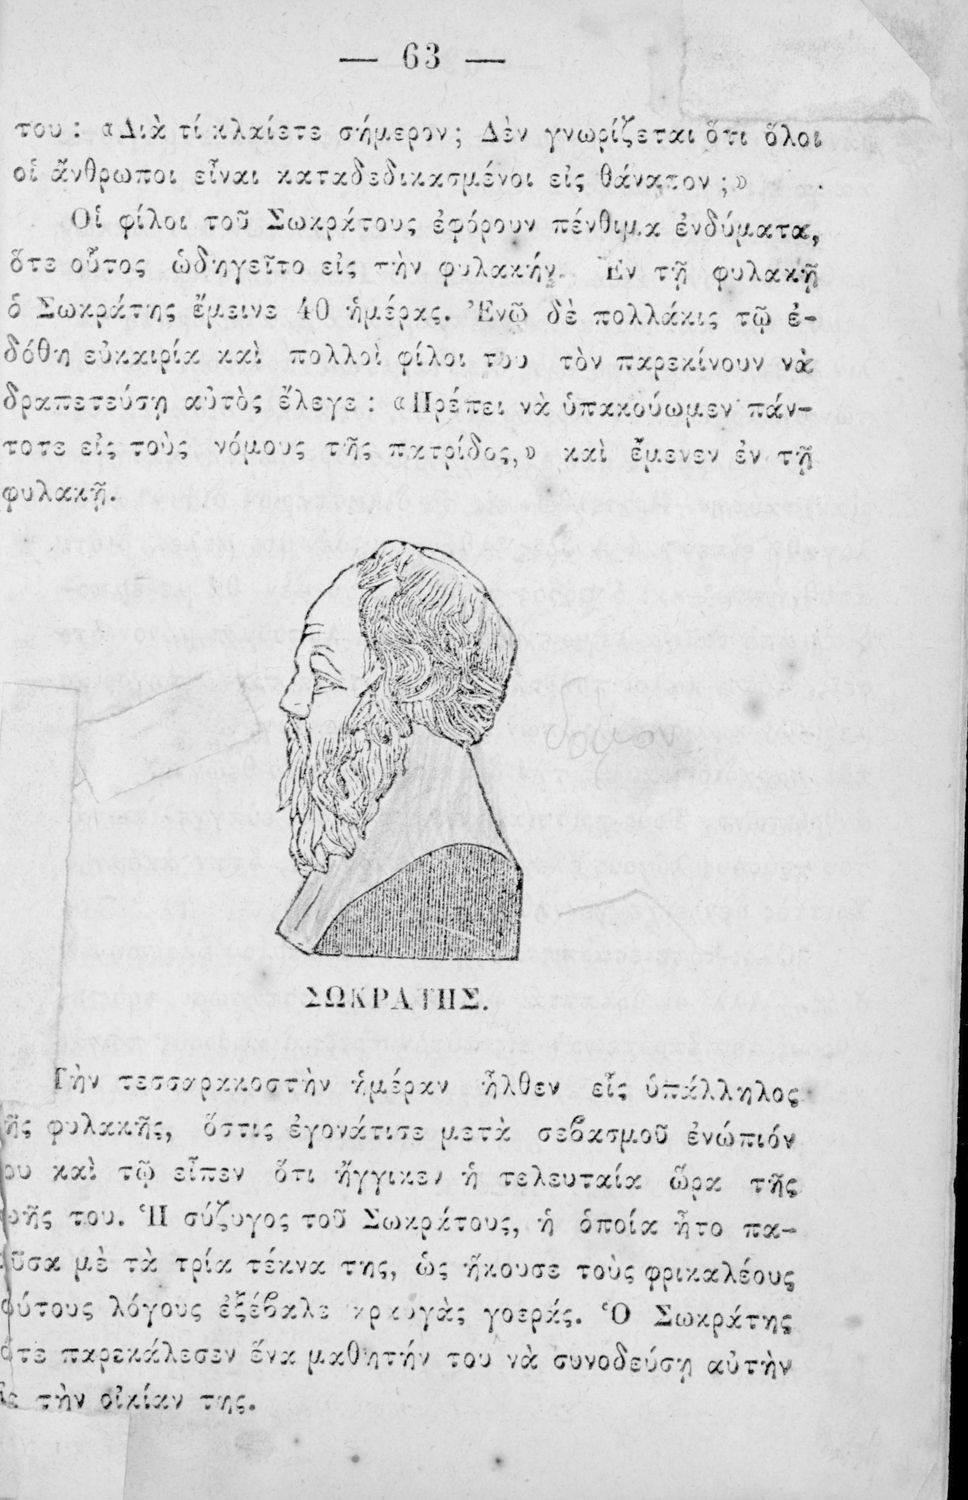 — 63 —
του : «Διὰ τί κλαίετε σήμερον; Δὲν γνωρίζεται ὅτι ὅλοι
οἱ ἄνθρωποι εἶναι καταδεδικασμένοι εἰς θάνατον ;»
Οἱ φίλοι τοῦ Σωκράτους ἐφόρουν πένθιμα ἐνδύματα,
ὅτε οὗτος ὡδηγεῖτο εἰς τὴν φυλακήν. Ἐν τῇ φυλακῇ
ὁ Σωκράτης ἔμεινε 40 ἡμέρας. Ἐνῷ δὲ πολλάκις τῷ ἐ-
δόθη εὐκαιρία καὶ πολλοὶ φίλοι του τὸν παρεκίνουν νὰ
δραπετεύσῃ αὐτὸς ἔλεγε : «Πρέπει νὰ ὑπακούωμεν πάν-
τοτε εἰς τοὺς νόμους τῆς πατρίδος,» καὶ ἔμενεν ἐν τῇ
φυλακῇ.
ΣΩΚΡΑΤΗΣ.
Τὴν τεσσαρακοστὴν ἡμέραν ἦλθεν εἷς ὑπάλληλος
τῆς φυλακῆς, ὅστις ἐγονάτισε μετὰ σεβασμοῦ ἐνώπιόν
του καὶ τῷ εἶπεν ὅτι ἤγγικεν ἡ τελευταία ὥρα τῆς
ζωῆς του. Ἡ σύζυγος τοῦ Σωκράτους, ἡ ὁποία ἦτο πα-
ροῦσα μὲ τὰ τρία τέκνα της, ὡς ἤκουσε τοὺς φρικαλέους
τούτους λόγους ἐξέβαλε κραυγὰς γοεράς. Ὁ Σωκράτης
τότε παρεκάλεσεν ἕνα μαθητήν του νὰ συνοδεύσῃ αὐτὴν
εἰς τὴν οἰκίαν της.